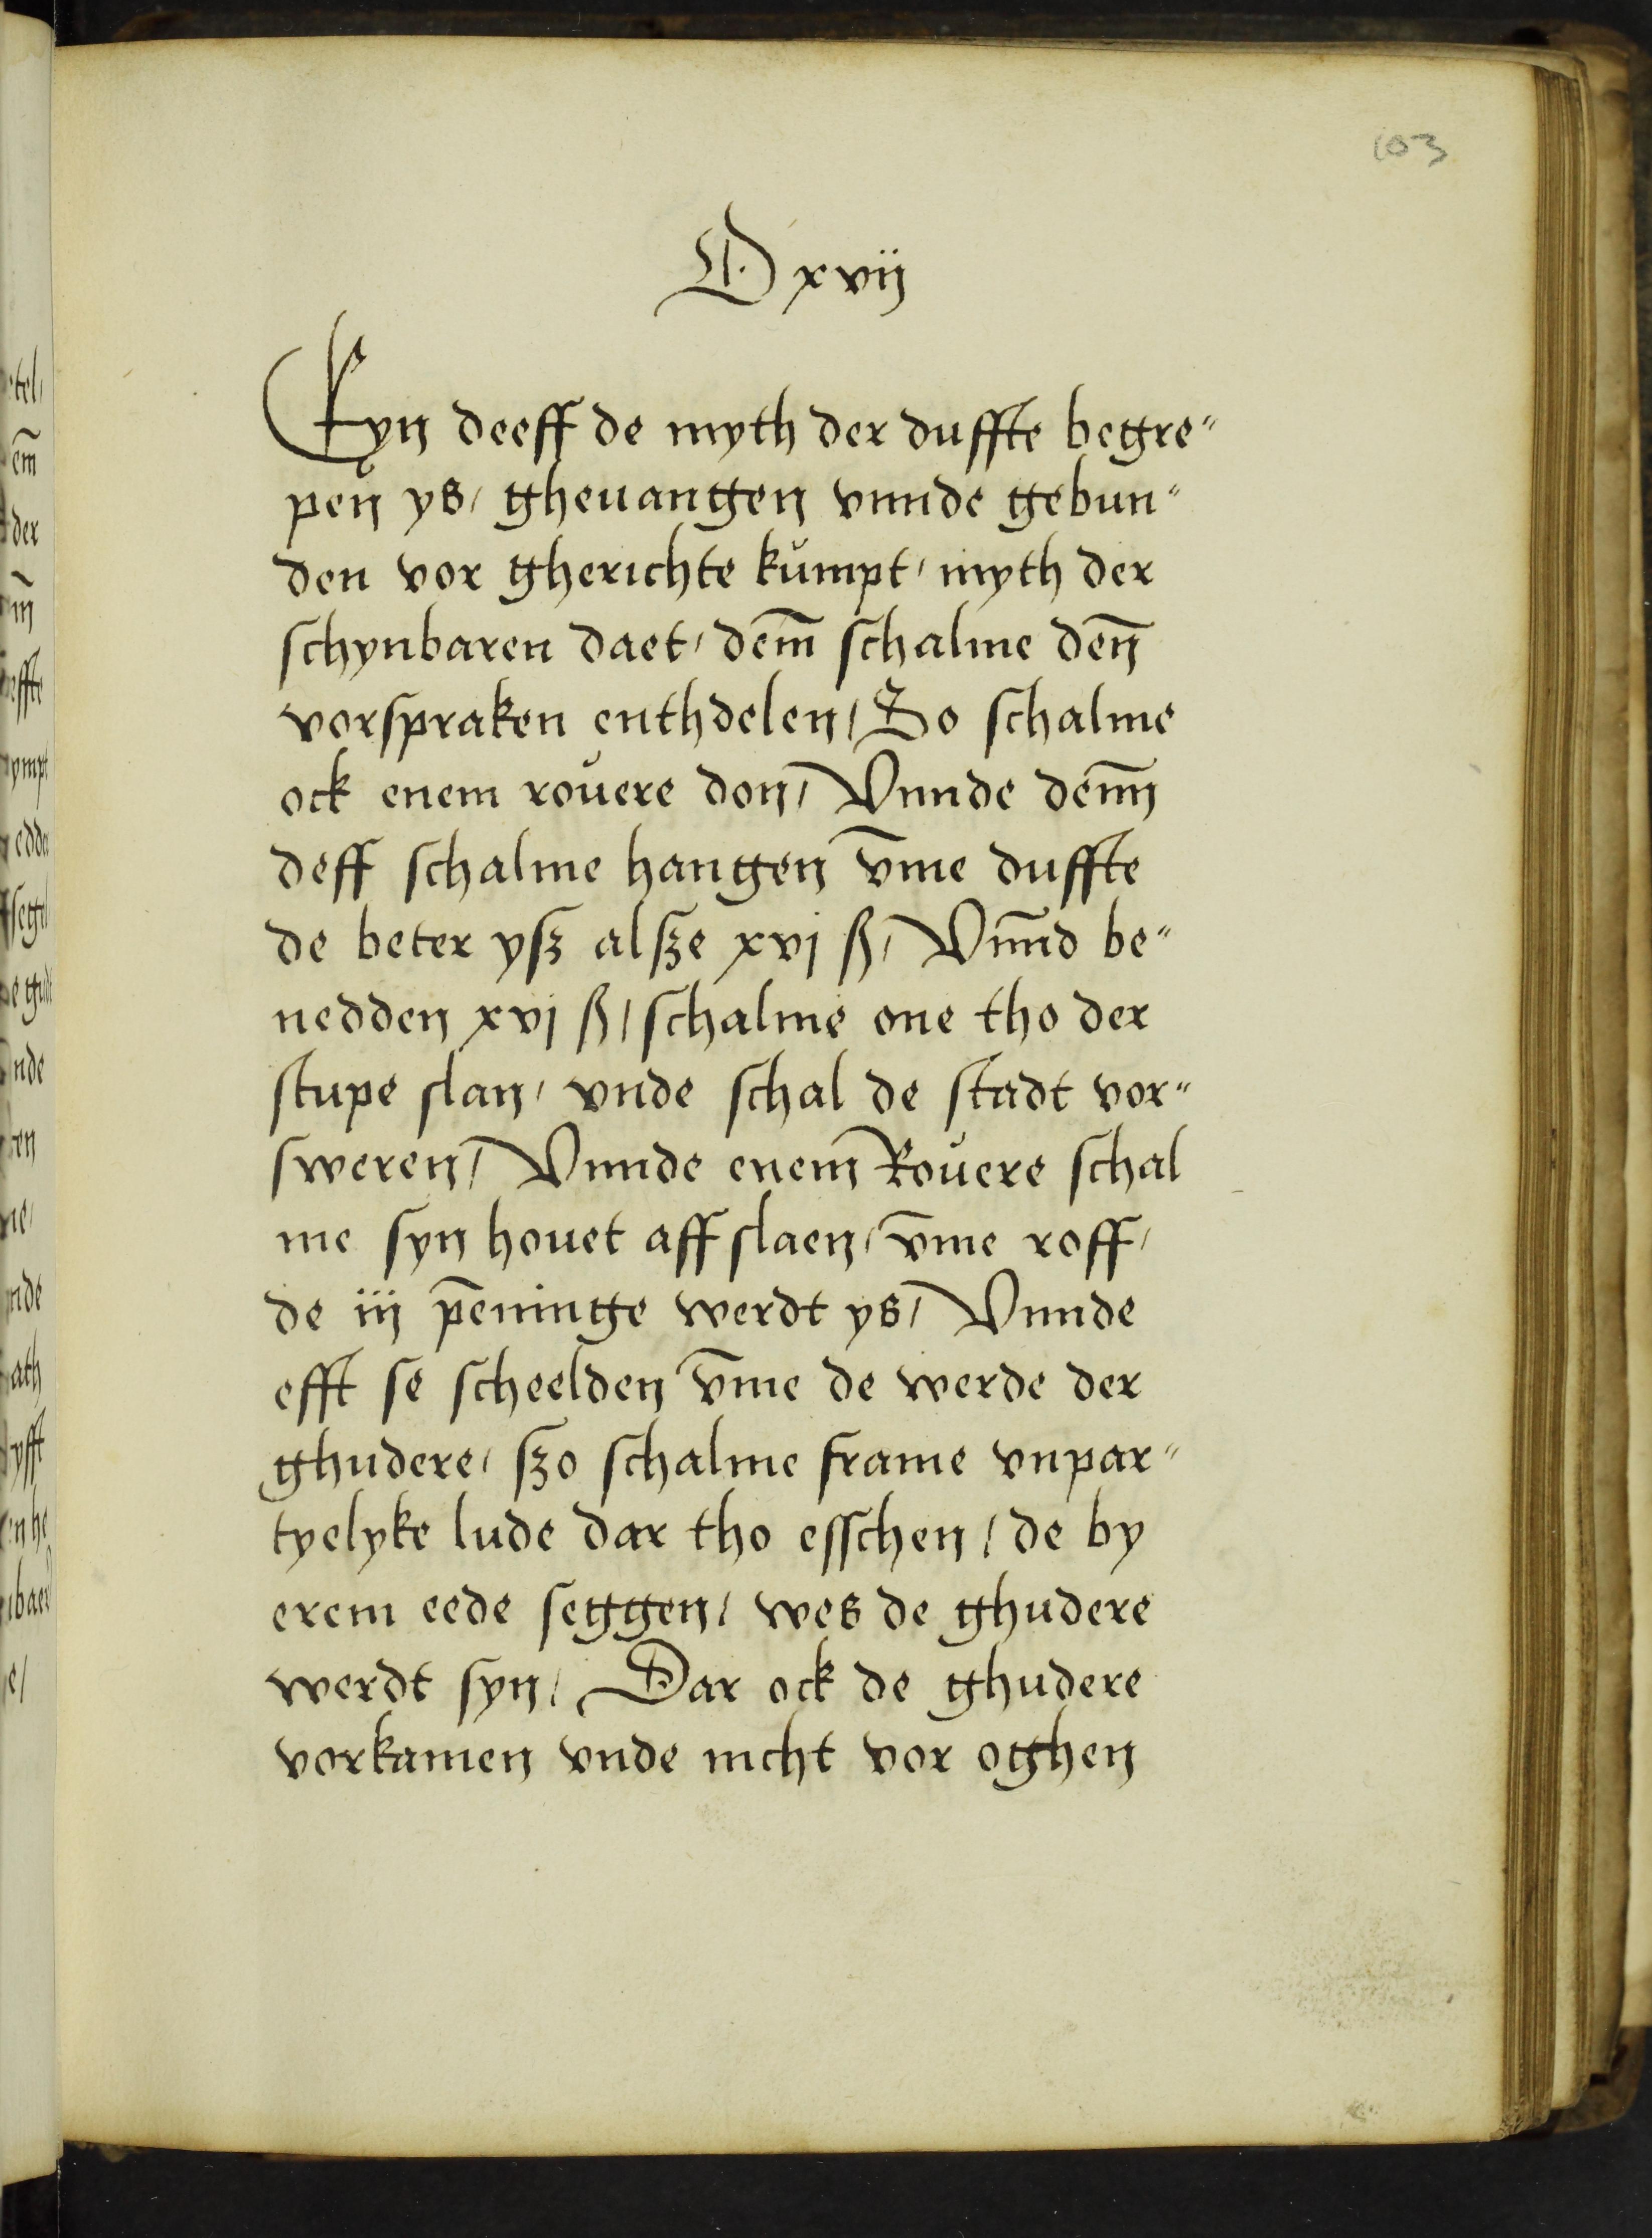 103
O xvij
Eyn deeff de myth der duffte begre„
pen ys/ gheuangen vnnde gebun„
den vor gherichte kŭmpt/ myth der
schynbaren daet/ dem̄ schalme den̄
vorspraken enthdelen/ So schalme
ock enem roŭere don/ Vnnde dem̄
deff schalme hangen v̄me duffte
de beter ysz alsze xvj ß/ Vnn̄d be„
nedden xvj ß/ schalme one tho der
stupe slan/ vnde schal de stadt vor„
sweren/ Vnnde enem̄ Roŭere schal
me syn houet aff slaen/ v̄me roff/
de iij pēninge werdt ys/ Vnnde
efft se scheelden v̄me de werde der
ghudere/ szo schalme frame vnpar„
tyelyke lude dar tho esschen/ de by
erem eede seggen/ wes de ghudere
werdt syn/ Dar ock de ghudere
vorkamen vnde nicht vor oghen